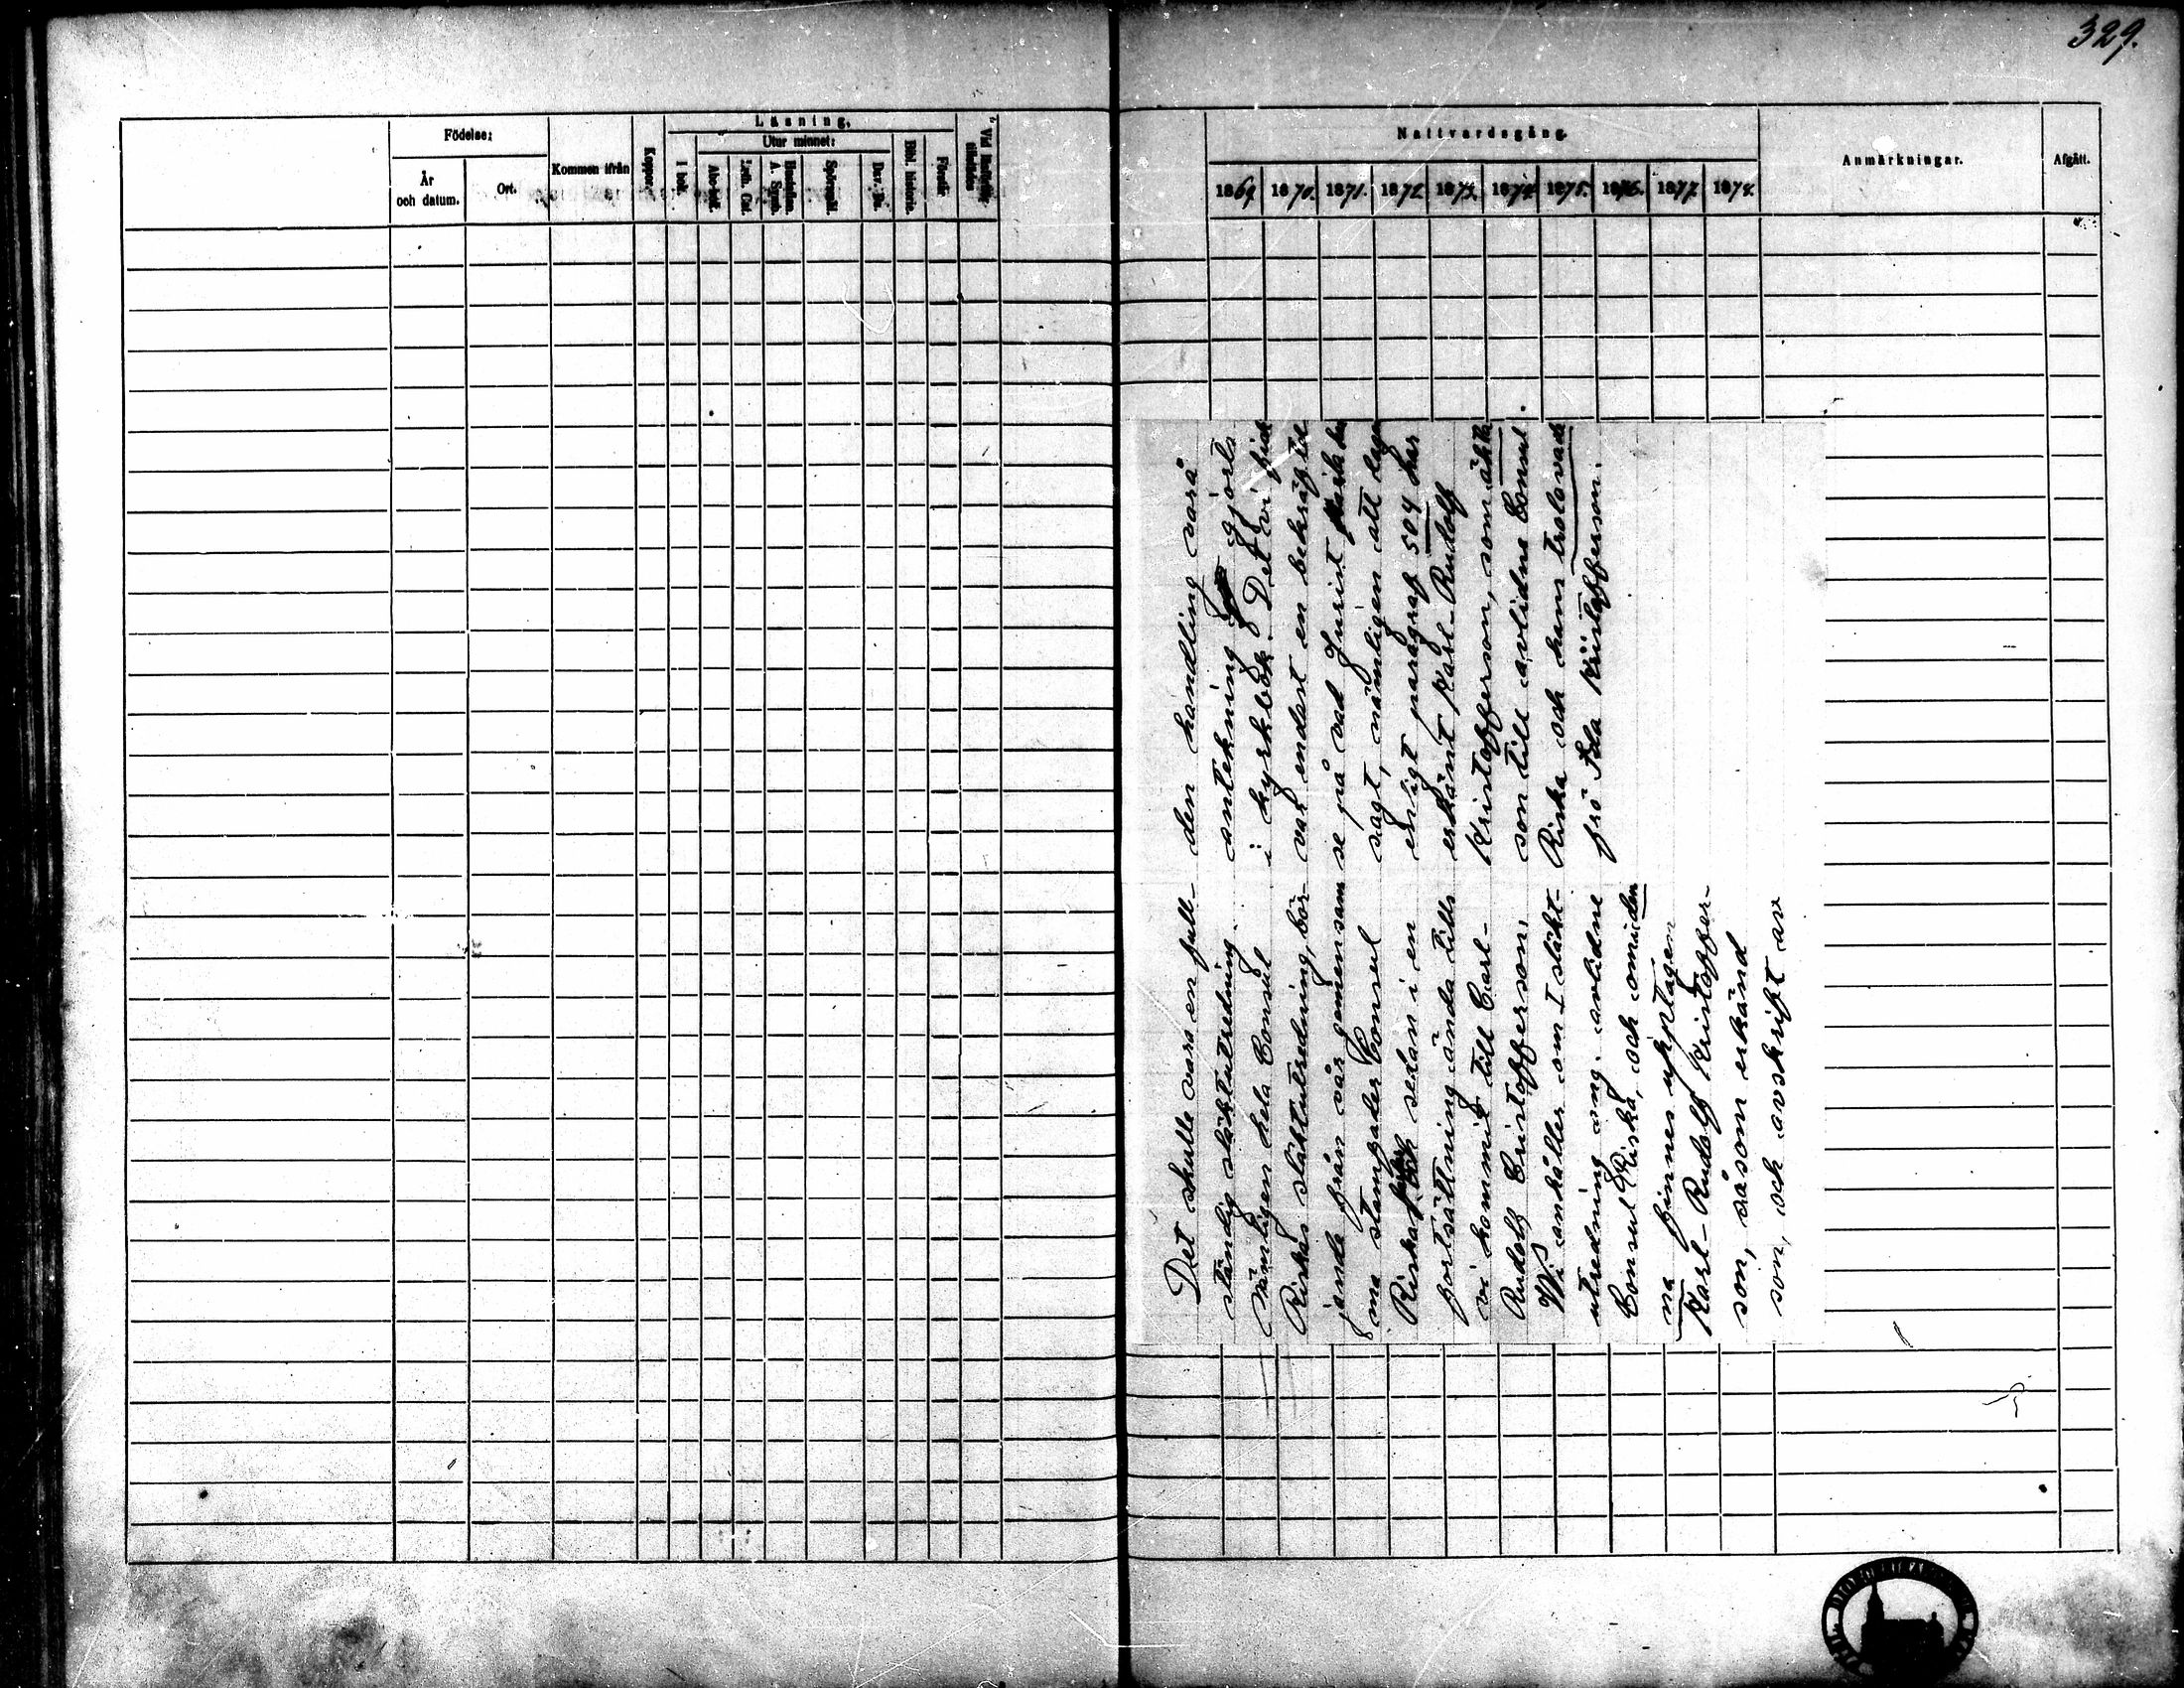 329.
Födelse:
År och datum.
Ort.
Kommen ifrån
Koppor.
Läsning.
I bok.
Utur minnet:
Abc-bok.
Luth. Cat.
Hustaflan. A. Symb.
Spörsmål.
Dav. Ps.
Bibl. historie.
Förstår.
Nattvardsgång.
1869. 1870. 1871. 1872. 1873. 1874. 1875. 1876. 1877. 1878.
Anmärkningar.
Afgått.
Det skulle vara en full-
ständig släktutredning
nämligen hela Consul
Riskas släktutredning, bör-
jande från vår gemensam
ma stamfader Consul
Riska sedan i en
fortsättning ända tills
vi kommit till Carl-
Rudolf Cristofferson.
Vi anhåller om I släkt-
utredning ang. avlidne
Consul Riska, och om i den
na finnes upptagen
Karl-Rudolf Kristoffer-
son, såsom erkänd
son, och avskrift av
den handling varå
antekning gjorts
i kyrkbok. Det vi fick
var endast en bekräftel
se på vad Jurist
sagt, nämligen att
enligt paragraf 504 har
erkänt Karl-Rudolf
Kristofferson, som äkta
son till avlidne Consul
Riska och hans trolovade
frö Ida Kristofferson.